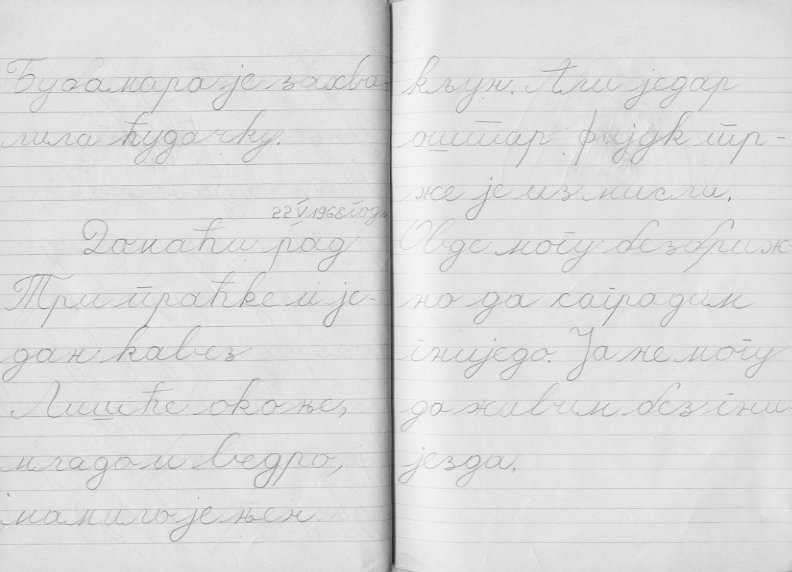 Бубамара је захва-
лила ћудачку.
22 V 1968 год.
Домаћи рад
Три праћке и је-
дан кавез
Лишће око ње,
младо и ведро,
мамило је њен
кљун. Али једар
оштар фијук тр-
же је из мисли.
Овде могу безбриж-
но да саградим
гниједо. Ја не могу
да живим без гни
језда.